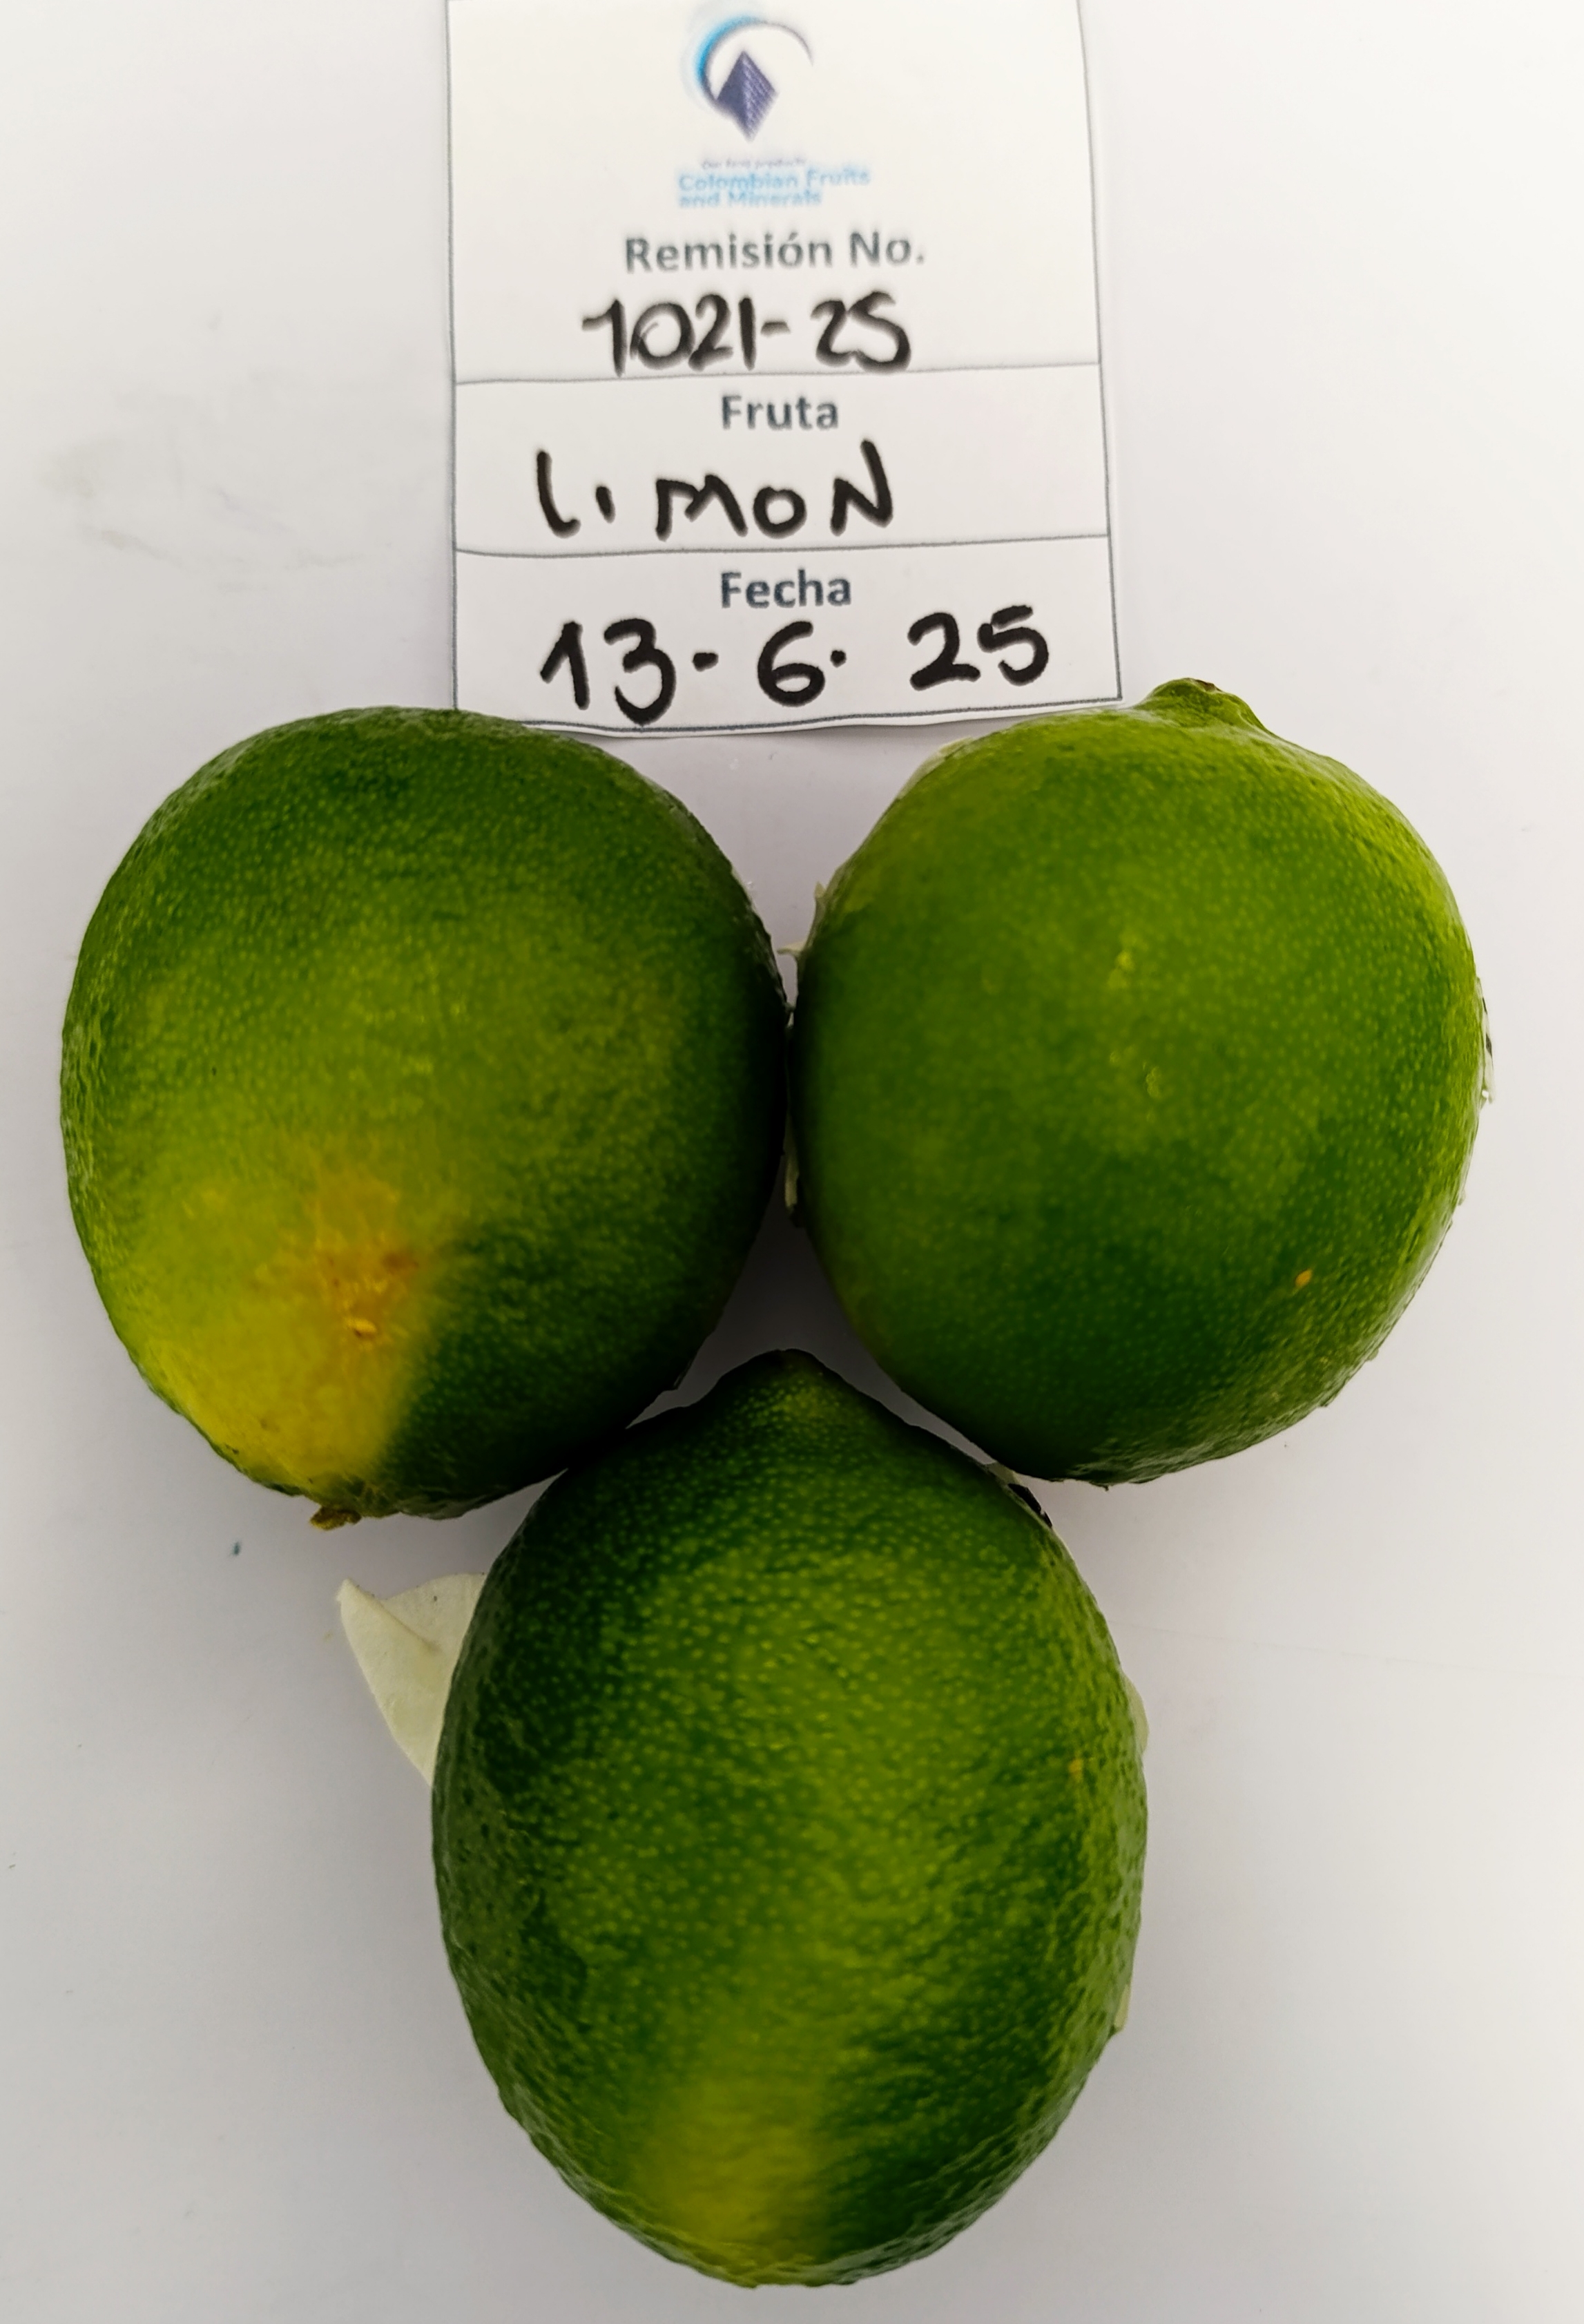 Our best products
Colombian Fruits
and Minerals
Remisión No.
1021-25
Fruta
LIMON
Fecha
13-6. 25